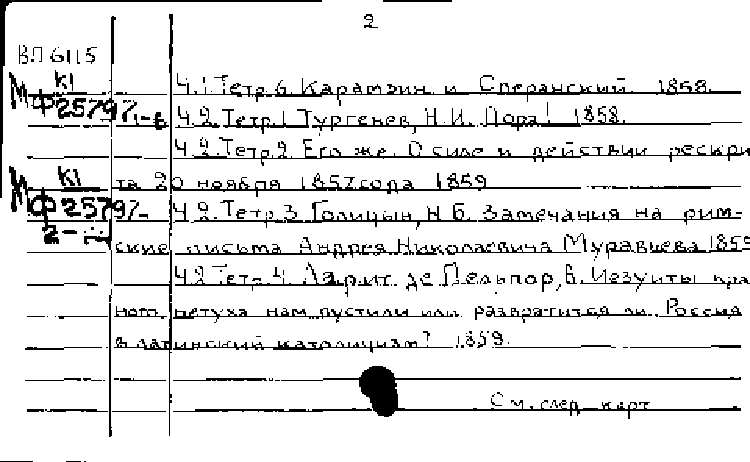 2
ВЛ 6115
Ч.1.Тетр.6. Карамзин и Сперанский. 1858.
К1
МФ 25797/1-6
Ч.2.Тетр.1. Тургенев, Н.И. Пора! 1858.
Ч.2.Тетр.2. Его же. О силе и действии рескри
К1
та 20 ноября 1857 года 1859
МФ 25797/2-
Ч.2.Тетр.3. Голицын, Н.Б. Замечания на рим-
ские письма Андрея Николаевича Муравьева 1859
Ч.2 Тетр.4. де В. Иезуиты
петуха нам пустили или развратится ли Россия
в латинский католицизм? 1859.
См. след. карт